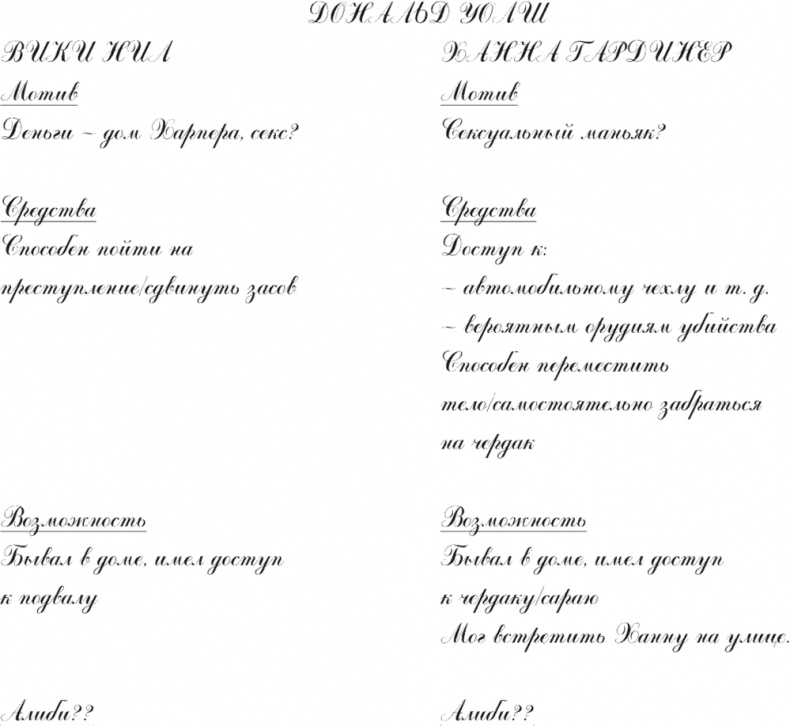 ДОНАЛЬД УОЛШ
ВИКИ НИЛ
Мотив
Деньги – дом Харпера, секс?
Средства
Способен пойти на
преступление/сдвинуть засов
Возможность
Бывал в доме, имел доступ
к подвалу
Алиби??
ХАННА ГАРДИНЕР
Мотив
Сексуальный маньяк?
Средства
Доступ к:
– автомобильному чехлу и т. д.
– вероятным орудиям убийства
Способен переместить
тело/самостоятельно забраться
на чердак
Возможность
Бывал в доме, имел доступ
к чердаку/сараю
Мог встретить Ханну на улице.
Алиби??